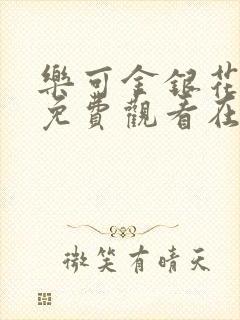 樂可金銀花
免費觀看在
微笑有晴天